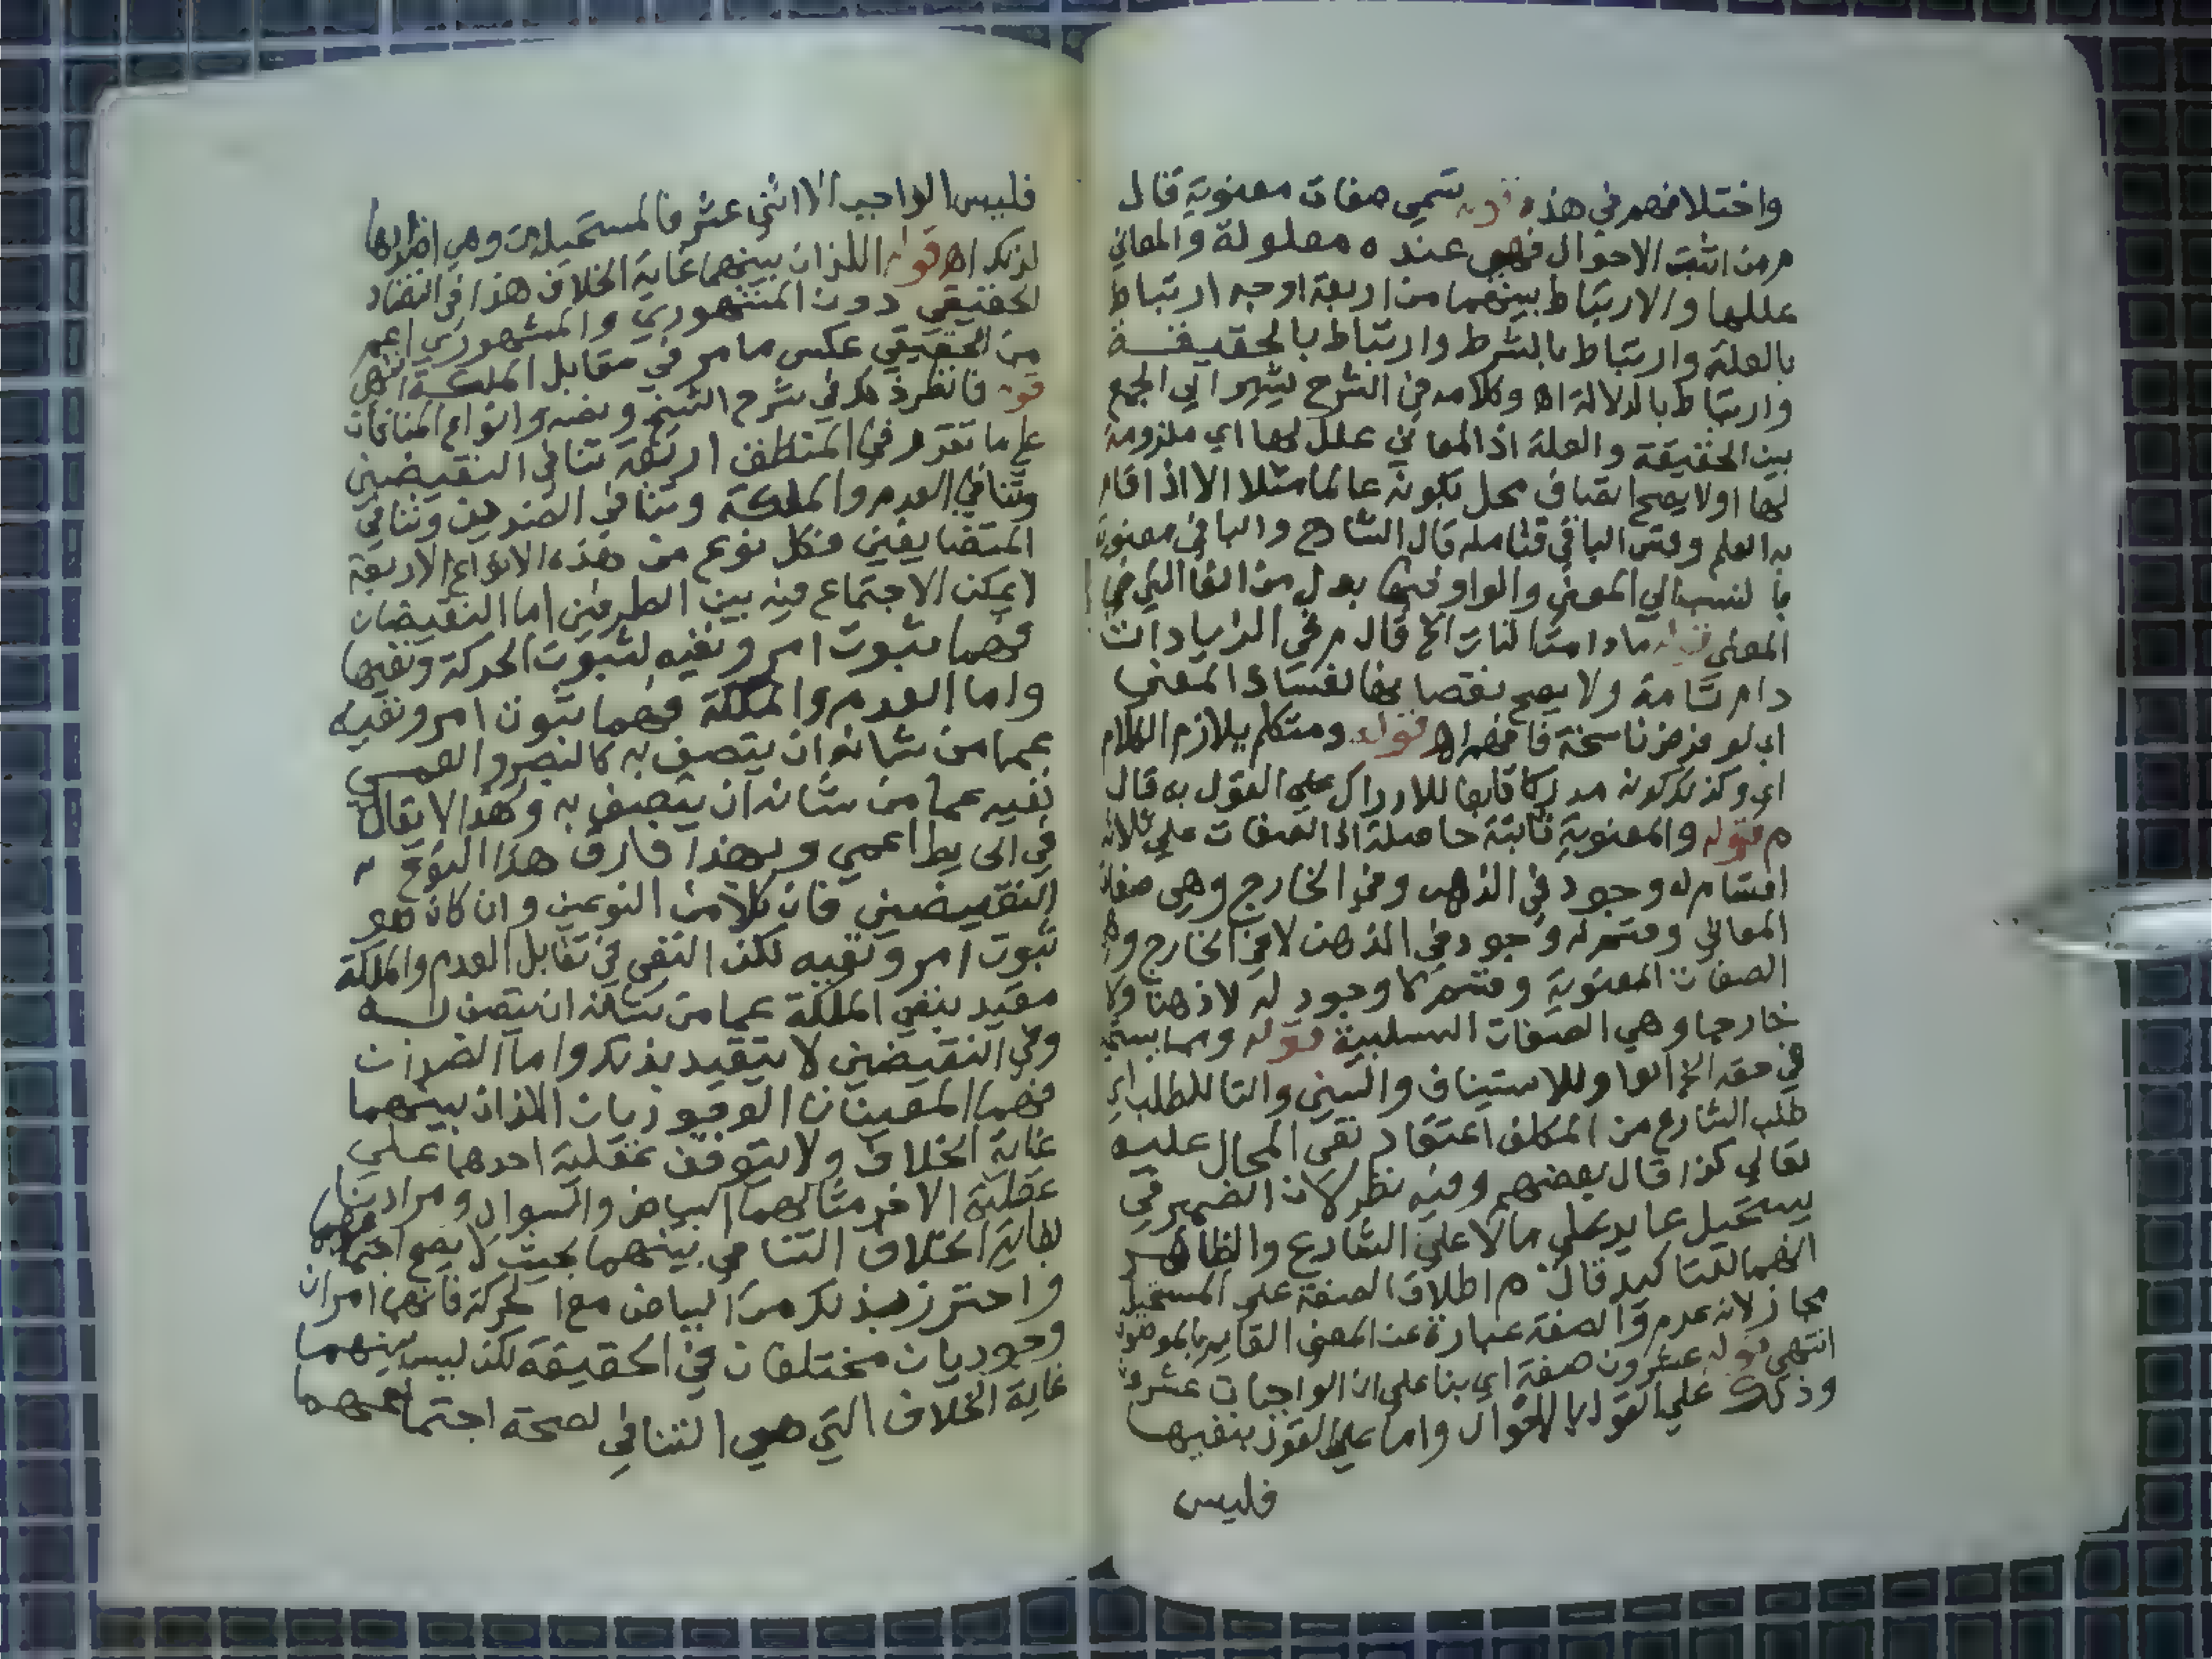 واختلافهم في هذه قوله تسمى صفات معنوية قال
م من اثبت الاحوال فهي عنده معلولة والمعاني
عللها والارتباط بينهما من اربعة اوجه ارتباط
بالعلة وارتباط بالشرط وارتباط بالحقيقة
وارتباط بالدلالة اه وكلامه في الشرح يشير الي الجمع
بين الحقيقة والعلة اذ المعاني علل لها اي ملزومة
لها اولا يصح اتصاف محل بكونه عالما مثلا الا اذا قام
به العلم وقس الباقي فتامله قال الشارح والباقي معنوية
بالنسبة الي المعني والواو فيها بدل من الفا التي في
المعلي قوله ما دامت الذات الخ قال م في الدايما دات
دام تامة ولا يصح نقصانها لفساد المعني
اي لو فرض ناسخة فافهم اه قوله ومتكلم يلازم الكلام
اي وكذلك كونه مدركا قايما للادراك علي القول به قال
م قوله والمعنوية ثابتة حاصلة اذ الصفات علي ثلاثة
اقسام له وجود في الذهب وفي الخارج وهي صفات
المعاني وقسم له وجود في الذهن لا في الخارج وهي
الصفات المعنوية وقسم لا وجود له لا ذهنا ولا
خارجا وهي الصفات السلبية قوله ومما يستحيل
في حقه الخ الواو للاستيناف والسين والتا للطلب اي
طلب الشارع من المكلف اعتقاد نفي المحال عليه
تعالي كذا قال بعضهم وفيه نظر لان الضمير في
يستحيل عايد علي ما لا علي الشارع والظاهر
انهما للتاكيد قال م اطلاق الصفة علي المستحيل
مجاز لانه عدم والصفة عبارة عن المعني القايم بالموصوف
انتهي قوله عشرون صفة اي بنا علي ان الواجبات عشرون
وذلك علي القول بالاحوال واما علي القول بنفيها
فليس
فليس الواجب الا اثني عشر فالمستحيلات وهي اضدادها
لذلك اه قوله اللذان بينهما غاية الخلاف هذا في التضاد
الحقيقي دون المشهوري والمشهوري اعم
من الحقيقي عكس ما مر في مقابل الملكة انتهي
قوله فانظر ذلك في شرح الشيخ ونصه وانواع المنافات
علي ما تقرر في المنطق اربعة تنافي النقيضين
وتنافي العدم والملكة وتنافي الضدين وتنافي
المتضايفين فكل نوع من هذه الانواع الاربعة
لا يمكن الاجتماع فيه بين الطرفين اما النقيضان
فهما ثبوت امر ونفيه لثبوت الحركة ونفيها
واما العدم والملكة فهما ثبوت امر ونفيه
عما من شانه ان يتصف به كالبصر والعمي
نفيه عما من شانه ان يتصف به وهذا لا يقال
في الحايط اعمي وبهذا فارق هذا النوع
النقيضين فان كلا من النوعين وان كان هو
ثبوت امر ونفيه لكن النفي في تقابل العدم والملكة
مقيد بنفي الملكة عما من شانه ان يتصف به
وفي النقيضين لا يتقيد بذلك واما الضدان
فهما المعينان الوجوديان اللذان بينهما
غاية الخلاف ولا يتوقف عقلية احدهما علي
عقلية الاخر مثالهما البياض والسواد ومرادنا
بغاية الخلاف التنافي بينهما بحيث لا يصح اجتماعهما
واحترز بذلك من البياض مع الحركة فانهما امران
وجوديان مختلفان في الحقيقة لكن ليس بينهما
غاية الخلاف التي هي التنافي لصحة اجتماعهما